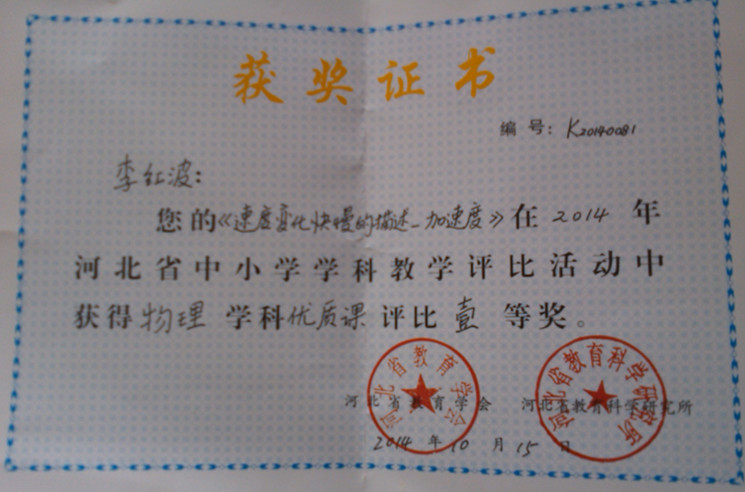 获奖证书
编号：K20140081
李红波：
您的《速度变化快慢的描述—加速度》在2014年
河北省中小学学科教学评比活动中
获得物理学科优质课评比壹等奖。
河北省教育学会
河北省教育科学研究所
河北省教育学会 河北省教育科学研究所
2014年10月15日